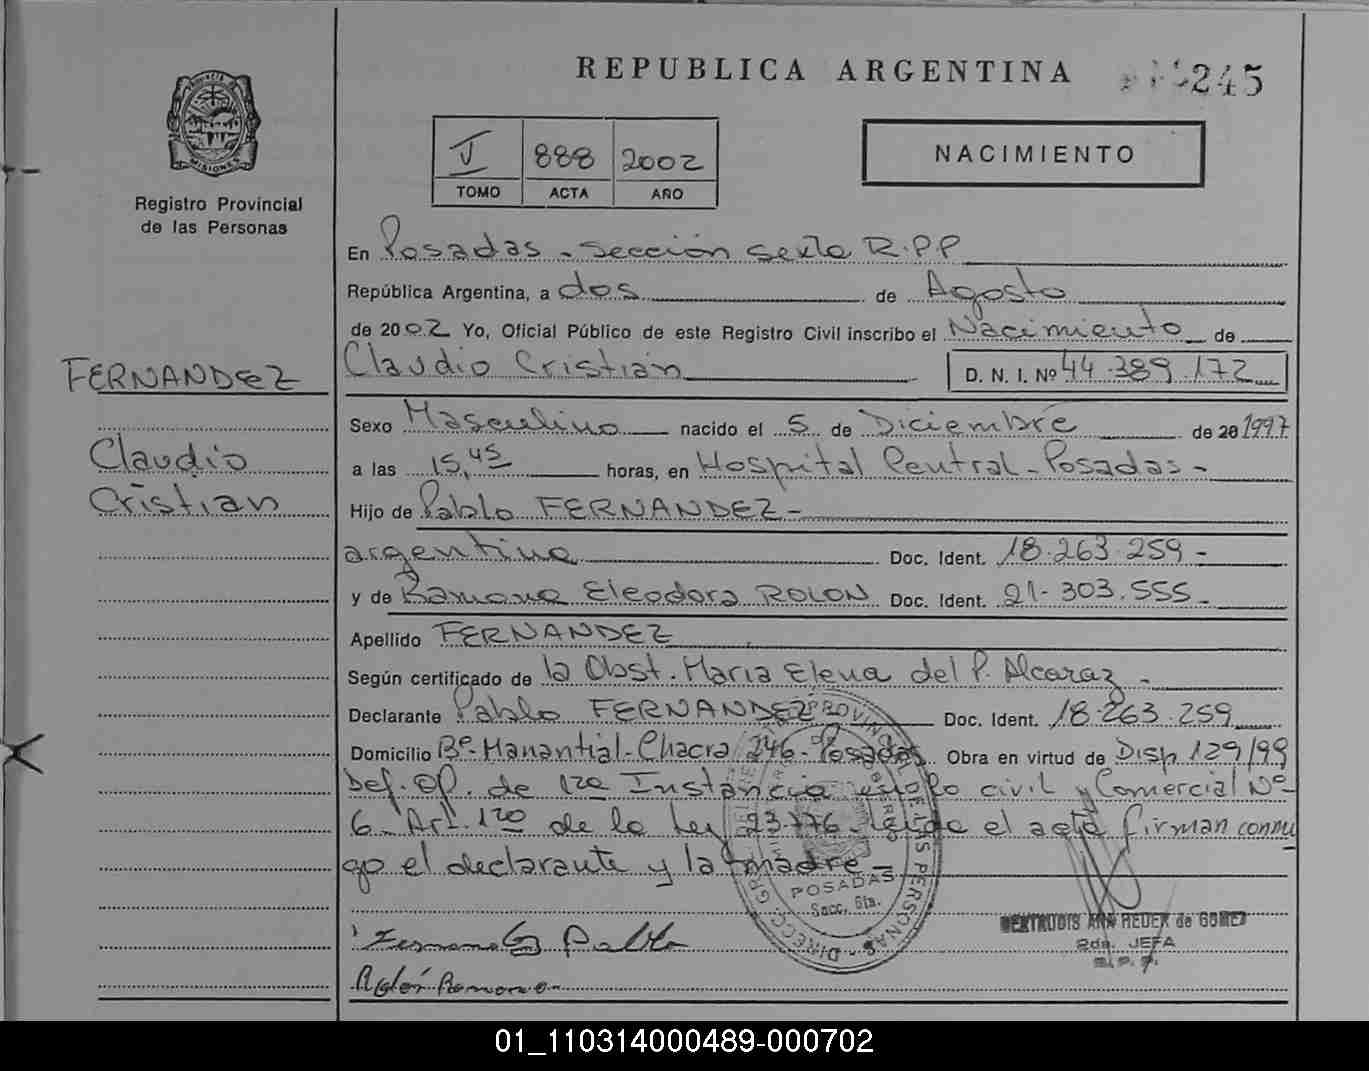 REPUBLICA ARGENTINA
245
MISIONES
Registro Provincial
de las Personas
V 888 2002
TOMO ACTA AÑO
NACIMIENTO
En Posadas - Sección Sexta R.P.P
República Argentina, a dos de Agosto
de 2002 Yo, Oficial Público de este Registro Civil inscribo el Nacimiento de
Claudio Cristian D. N. I. Nº 44.389.172
FERNANDEZ
Claudio
Cristian
Sexo Masculino nacido el 5 de Diciembre de 20 1997
a las 15,45 horas, en Hospital Central - Posadas -
Hijo de Pablo FERNANDEZ -
argentino Doc. Ident. 18.263.259 -
y de Ramona Eleodora ROLON Doc. Ident. 21.303.555 -
Apellido FERNANDEZ
Según certificado de la Obst. Maria Elena del P. Alcaraz -
Declarante Pablo FERNANDEZ Doc. Ident. 18.263.259
Domicilio Bº Manantial - Chacra 246 - Posadas Obra en virtud de Disp 129/99
Def. Of. de 1ra Instancia en lo civil y Comercial Nº
6 - Art. 1ro de la Ley 23.776 - leida el acta firman conmi
go el declarante y la madre -
POSADAS
Secc. 6ta.
GERTRUDIS ANA REDER de GOMEZ
2da. JEFA
R. P. P.
Fernandez Pablo
Ramona
01_110314000489-000702